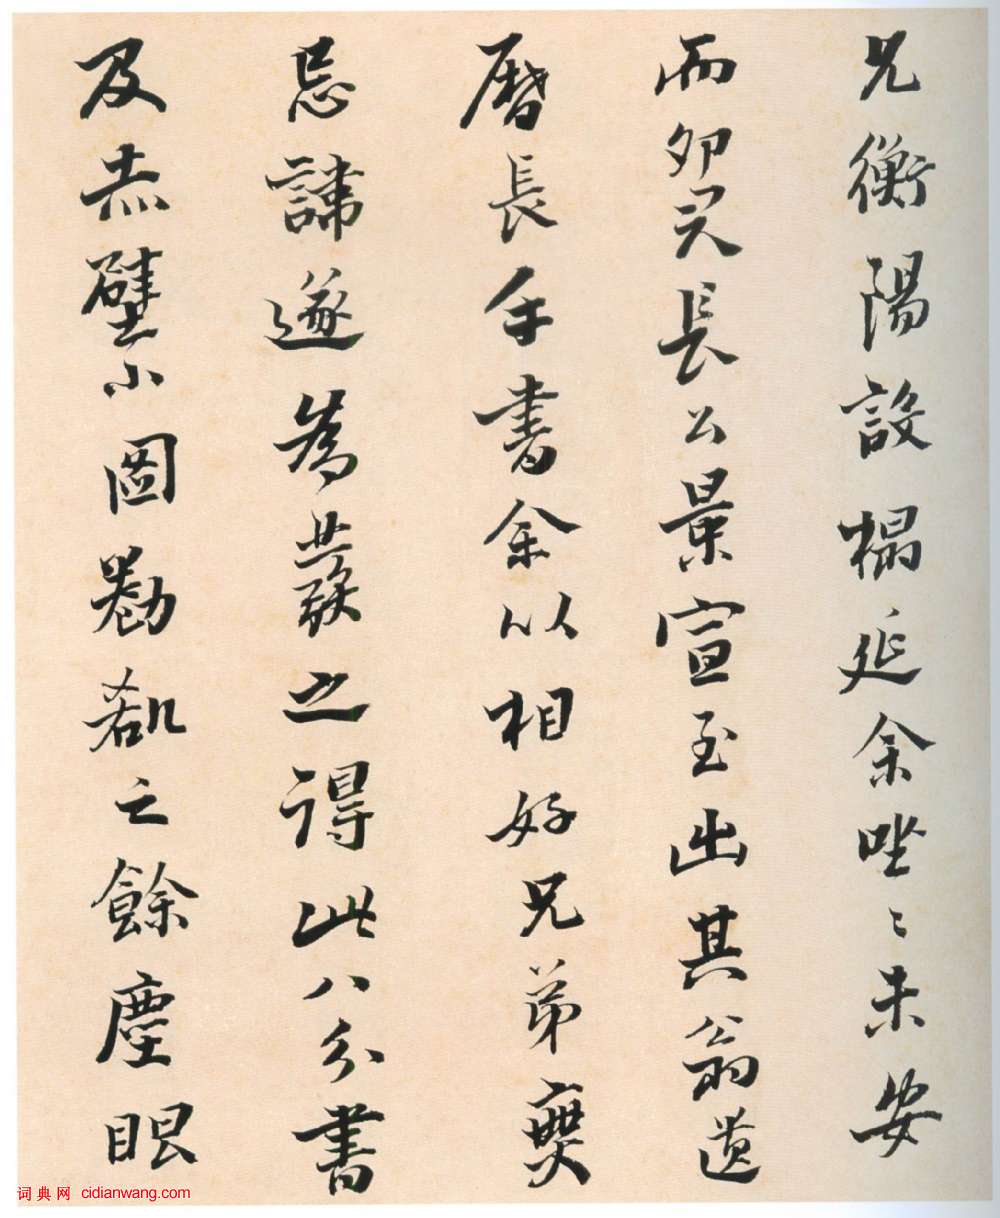 兄衡陽設榻延余唑〻未安
而卯長公景宣至出其翁遺
曆長手書余以相好兄弟
忌諱遂為發之得此八分書
及赤壁小圖之餘塵眼
词典网 cidianwang.com